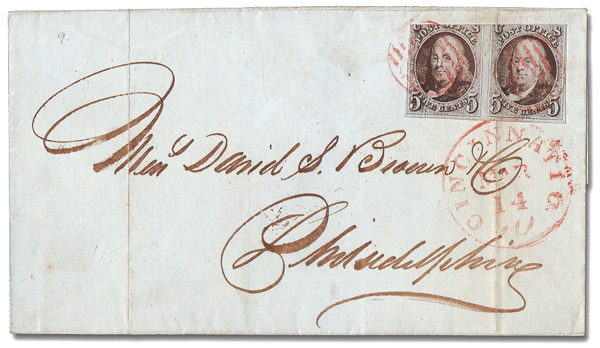 9.
POST OFFICE
5 FIVE CENTS 5
POST OFFICE
5 FIVE CENTS 5
Mess David S. Brown & Co
Philadelphia
CINCINNATI O.
14